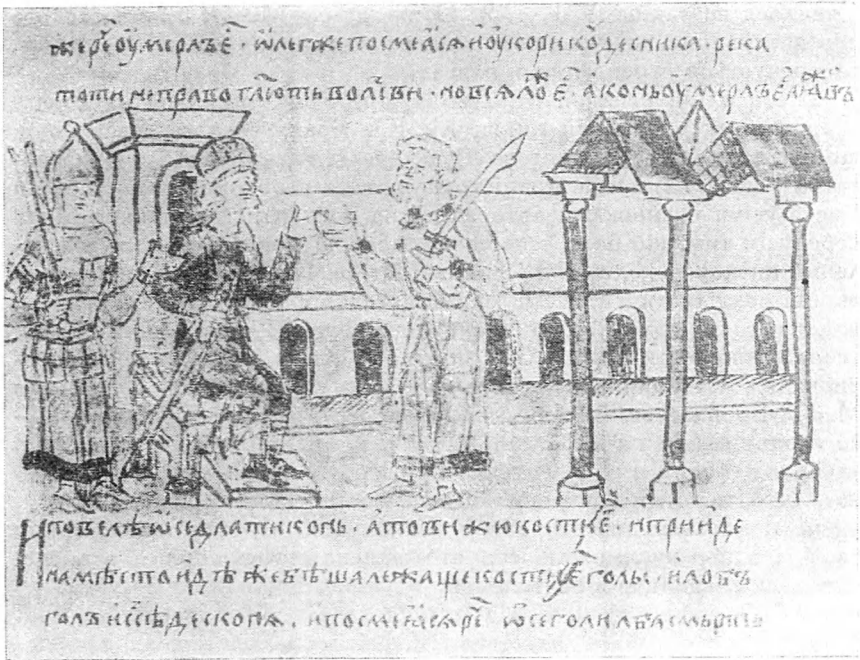 же рече оумерлъ е҃ · ѡлегже посмеꙗсѧ ноукори кодесника · река
тоти неправо гл҃ють волъсви · новсяложе е҃ · аконьоумерлъ е҃ аꙗживъ
Иповелѣ ѡседлати конь · атовижю кости е҃ · иприиде
намѣсто идѣже бѣша лежаще кости е҃ голы · илобъ
голъ иссѣде с конѧ · ипосмеꙗсѧ рч҃е ѿсеголилбасмьрть